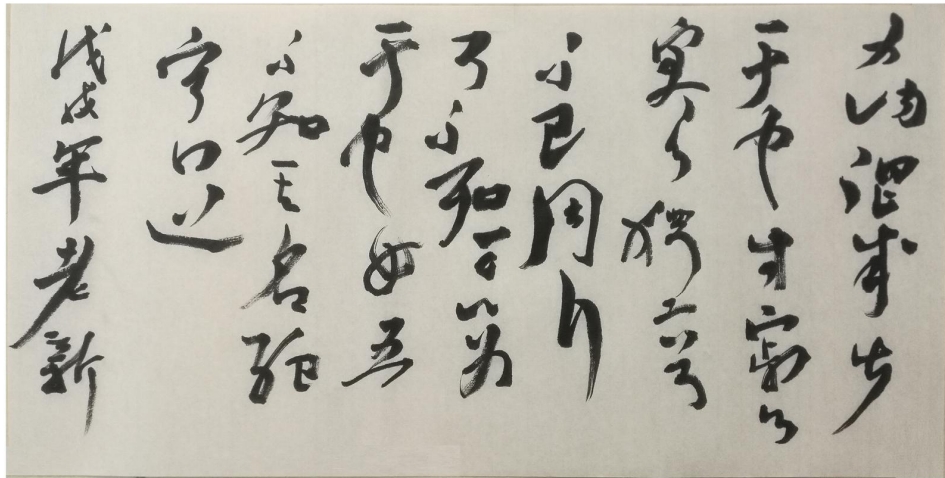 有物混成先
天地生寂兮
寥兮獨立
不改周行
而不殆可以為
天下母吾
不知其名強
字曰道
戊戌年老新